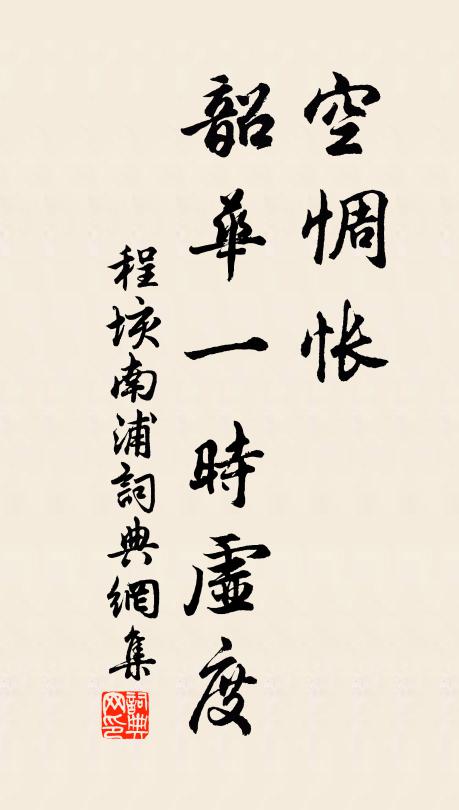 空惆怅
韶華一時虛度
程垓南浦詞典網集
詞典网印